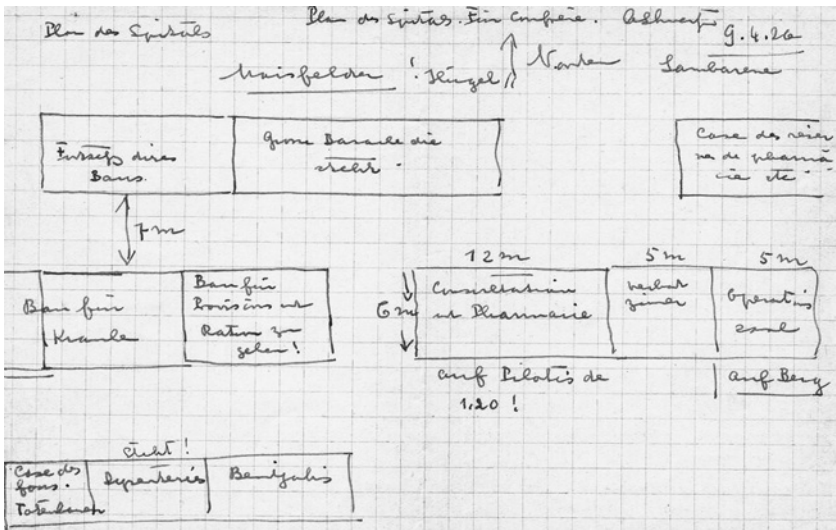 Plan des Spitals
Plan des Spitals. Für Confrère.
9.4.26
Maisfelder ! Hügel Norden
Lambarene
dieses
Baus.
Grosse Baracke die
steht.
Case des réser
ves de pharma
cie etc.
7 m
Bau für
Kranke
Bau für
Provisions und
Ration zu
geben!
12 m
5 m
5 m
6 m
Consultation
und Pharmacie
Verband
zimmer
Operations
saal
auf Pilotis de
1,20 !
auf Berg
steht!
Case des
fous.
Dysenteries
Benjabis